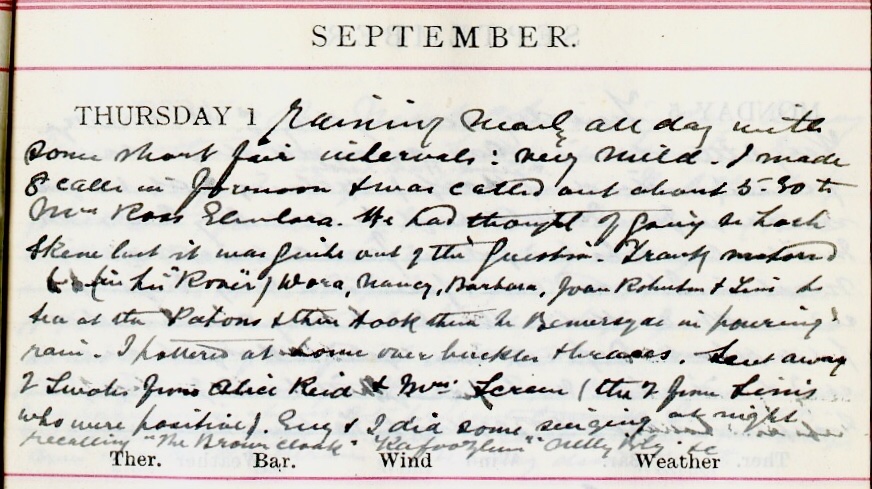 SEPTEMBER.
THURSDAY 1 Raining nearly all day with
some short fair intervals: very mild. I made
8 calls in forenoon & was called out about 5-30 to
Mrs Ross Elmlora. We had thought of going to Loch
Skene but it was quite out of the question. Frank motored
(in his "Rover") Dora, Nancy, Barbara, Joan & to
tea at the Patons & then took them to in pouring
rain. I pottered at home over & . Sent away
2 Swabs from Alice Reid & Mrs (the 2 from
who were positive). & I did some singing at night
recalling "The Brown Cloak" "Kafoozlum" Nelly Bly &c
Ther. Bar. Wind Weather